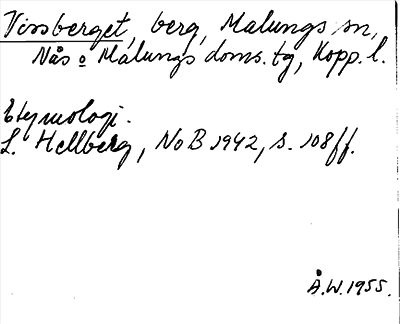 Vissberget, berg, Malungs sn,
Nås o Malungs doms. tg, Kopp. l.
Etymologi.
L. Hellberg, NoB 1942, s. 108 ff.
Å.W. 1955.